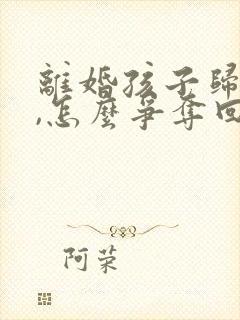 離婚孩子歸
,怎麼爭奪回
阿荣